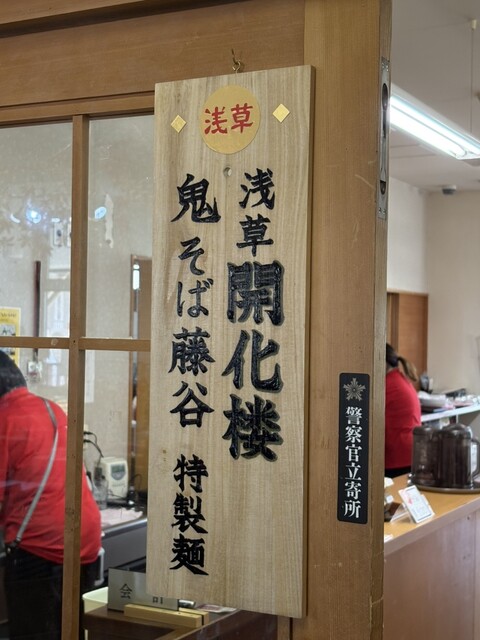 浅草
浅草開化楼
鬼そば藤谷 特製麺
警察官立寄所
会計